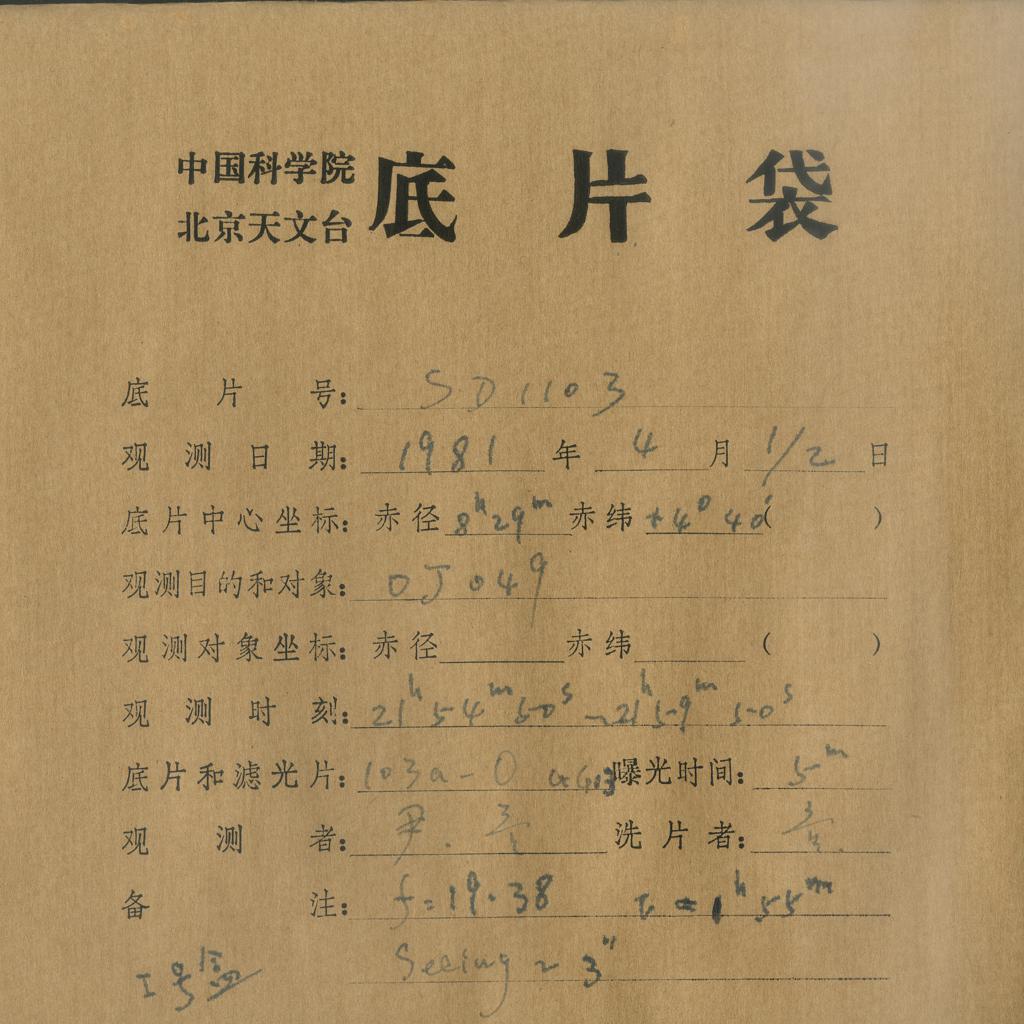 中国科学院
北京天文台
底片袋
底片号: SD1103
观测日期: 1981年4月1/2日
底片中心坐标: 赤径 8h29m 赤纬 +4°40′( )
观测目的和对象: OJ049
观测对象坐标: 赤径 赤纬 ( )
观测时刻: 21h54m50s~21h59m50s
底片和滤光片: 103a-O 曝光时间: 5m
观测者: 尹. 洗片者:
备注: f=19.38 t=1h55m
Seeing ~ 3"
I号盒